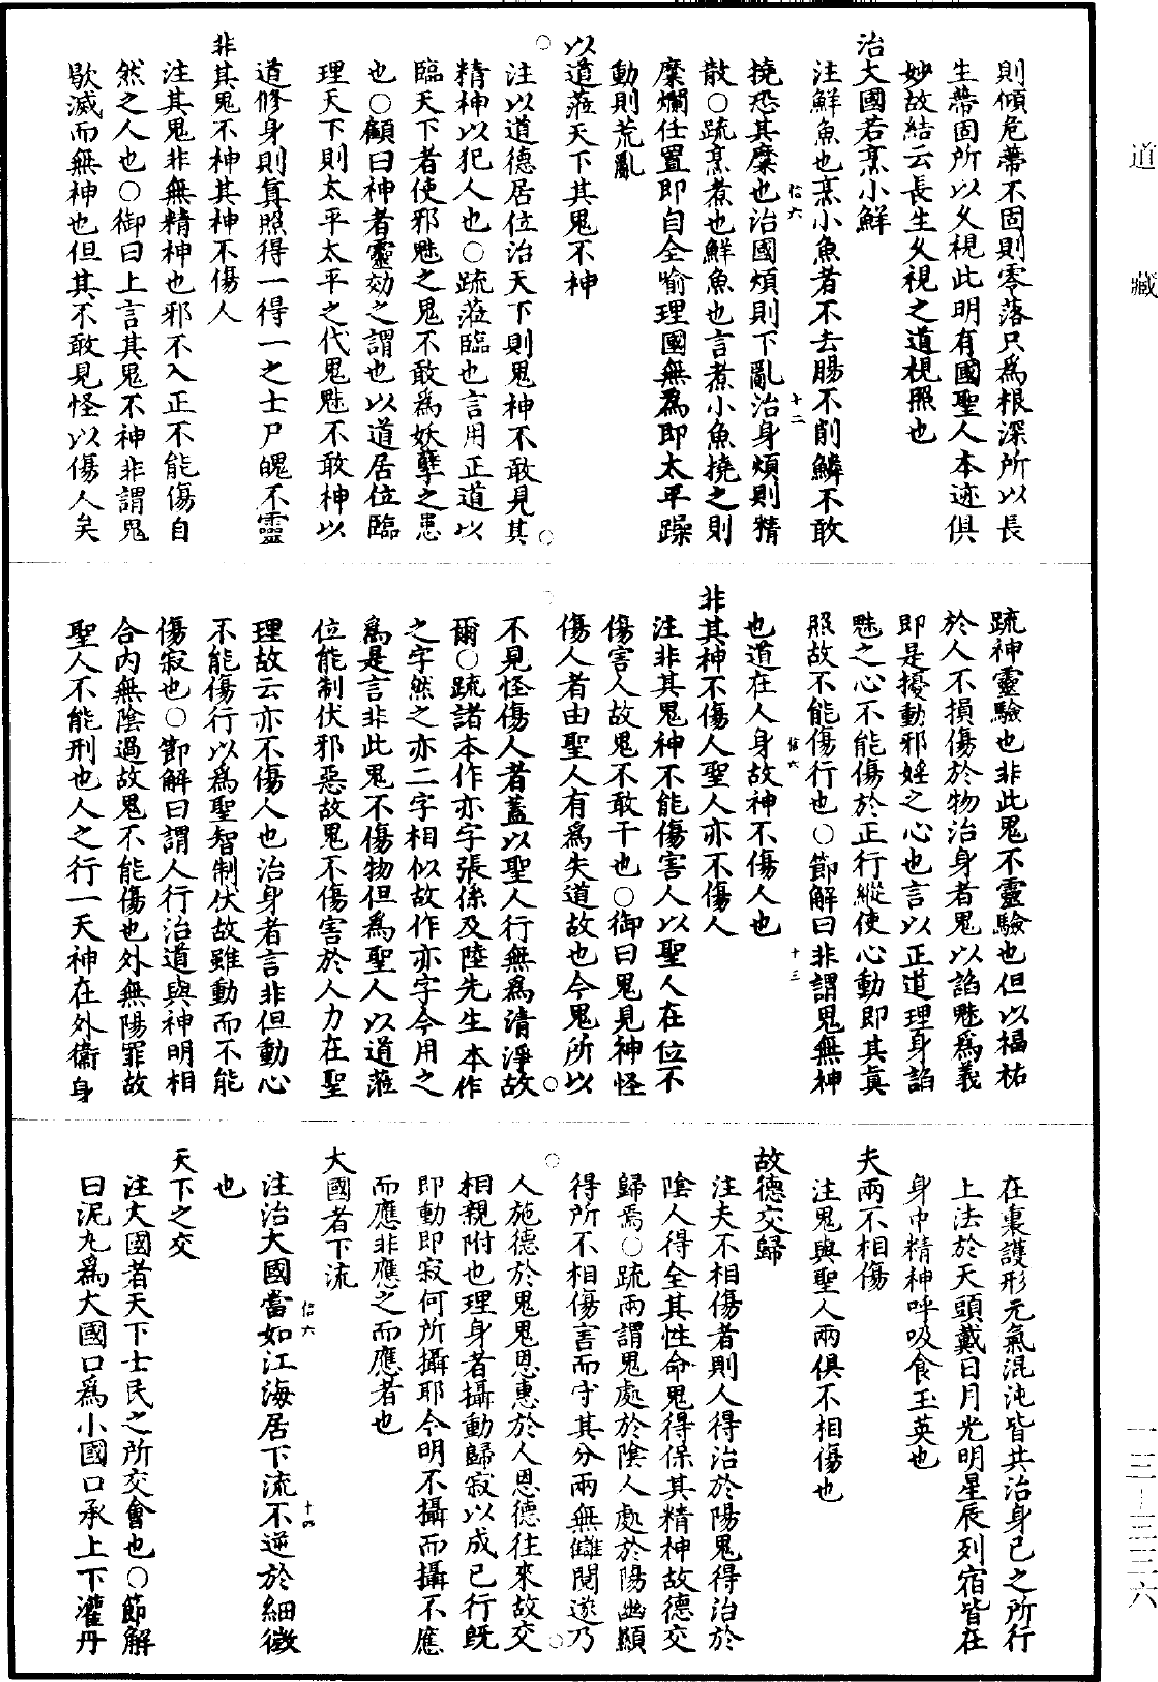 道藏
一三—三三六
則傾危蔕不固則零落只為根深所以長
生蔕固所以久視此明有國聖人本迹俱
妙故結云長生久視之道視照也
治大國若烹小鮮
注鮮魚也烹小魚者不去腸不削鱗不敢
撓恐其糜也治國煩則下亂治身煩則精
散○疏烹煮也鮮魚也言煮小魚撓之則
糜爛任置即自全喻理國無為即太平躁
動則荒亂
以道蒞天下其鬼不神
注以道德居位治天下則鬼神不敢見其
精神以犯人也○疏蒞臨也言用正道以
臨天下者使邪魅之鬼不敢為妖孽之患
也○顧曰神者靈効之謂也以道居位臨
理天下則太平太平之代鬼魅不敢神以
道修身則真照得一得一之士尸魄不靈
非其鬼不神其神不傷人
注其鬼非無精神也邪不入正不能傷自
然之人也○御曰上言其鬼不神非謂鬼
歇滅而無神也但其不敢見怪以傷人矣
疏神靈驗也非此鬼不靈驗也但以福祐
於人不損傷於物治身者鬼以諂魅為義
即是擾動邪婬之心也言以正道理身諂
魅之心不能傷於正行縱使心動即其真
照故不能傷行也○節解曰非謂鬼無神
也道在人身故神不傷人也
非其神不傷人聖人亦不傷人
注非其鬼神不能傷害人以聖人在位不
傷害人故鬼不敢干也○御曰鬼見神怪
傷人者由聖人有為失道故也今鬼所以
不見怪傷人者蓋以聖人行無為清淨故
爾○疏諸本作亦字張係及陸先生本作
之字然之亦二字相似故作亦字今用之
為是言非此鬼不傷物但為聖人以道蒞
位能制伏邪惡故鬼不傷害於人力在聖
理故云亦不傷人也治身者言非但動心
不能傷行以為聖智制伏故雖動而不能
傷寂也○節解曰謂人行治道與神明相
合內無陰過故鬼不能傷也外無陽罪故
聖人不能刑也人之行一天神在外衞身
在裏護形元氣混沌皆共治身已之所行
上法於天頭戴日月光明星辰列宿皆在
身中精神呼吸食玉英也
夫兩不相傷
注鬼與聖人兩俱不相傷也
故德交歸
注夫不相傷者則人得治於陽鬼得治於
陰人得全其性命鬼得保其精神故德交
歸焉○疏兩謂鬼處於陰人處於陽幽顯
得所不相傷害而守其分兩無讎閱遂乃
人施德於鬼鬼恩惠於人恩德往來故交
相親附也理身者攝動歸寂以成已行既
即動即寂何所攝耶今明不攝而攝不應
而應非應之而應者也
大國者下流
注治大國當如江海居下流不逆於細微
也
天下之交
注大國者天下士民之所交會也○節解
曰泥丸為大國口為小國口承上下灌丹